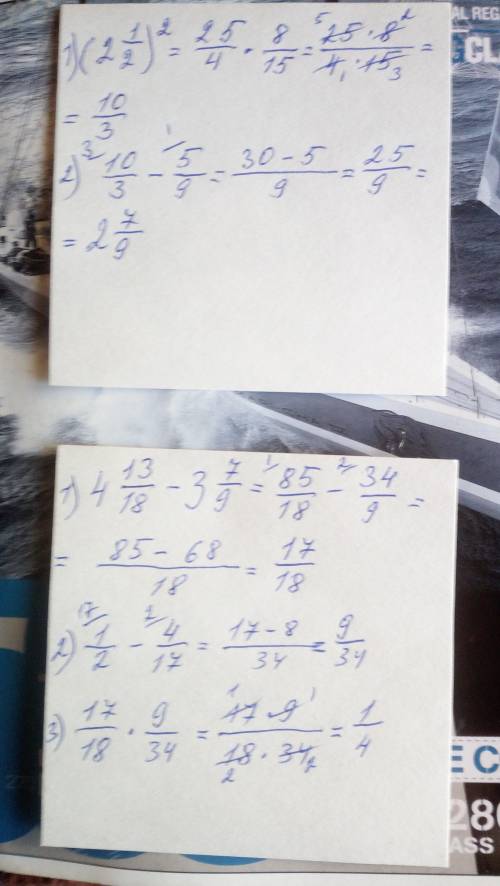 1) (2 1/2)² = 25/4 · 8/15 = ⁵25 · 8² / 4₁ · 15₃ =
= 10/3
2) ³⁄ 10/3 − ¹⁄ 5/9 = 30 − 5 / 9 = 25/9 =
= 2 7/9
1) 4 13/18 − 3 7/9 = ¹⁄ 85/18 − ²⁄ 34/9 =
= 85 − 68 / 18 = 17/18
2) ¹⁷⁄ 1/2 − ²⁄ 4/17 = 17 − 8 / 34 = 9/34
3) 17/18 · 9/34 = ¹17 · 9¹ / 18₂ · 34₂ = 1/4
E C
280
ASS